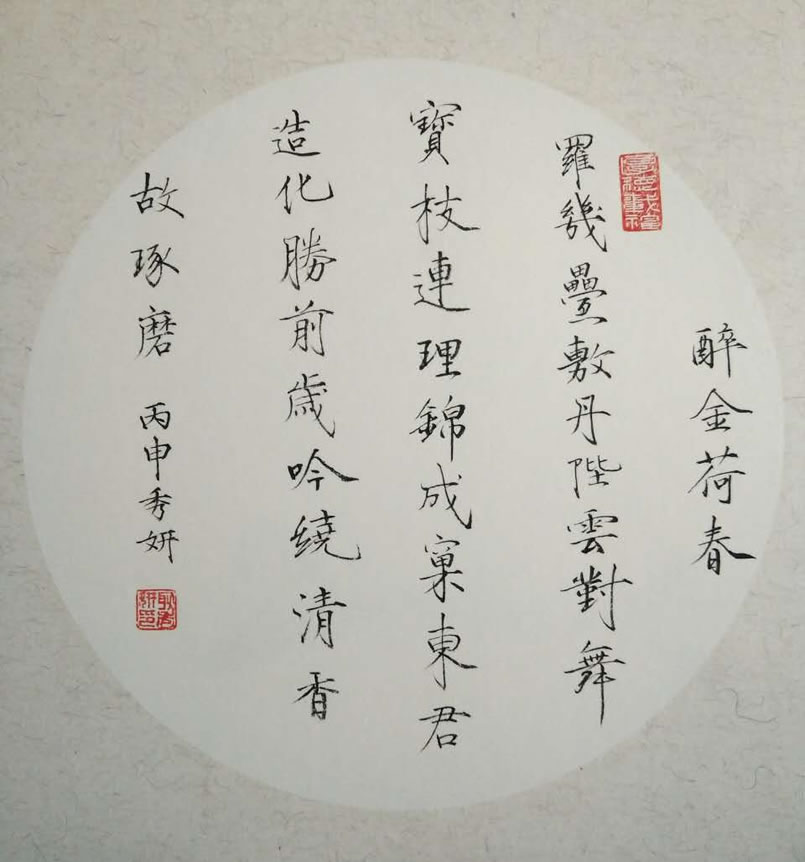 醉金荷春
羅幾疊敷丹陛雲對舞
寶枝連理錦成窠東君
造化勝前歲吟繞清香
故琢磨 丙申秀妍
耿秀妍印